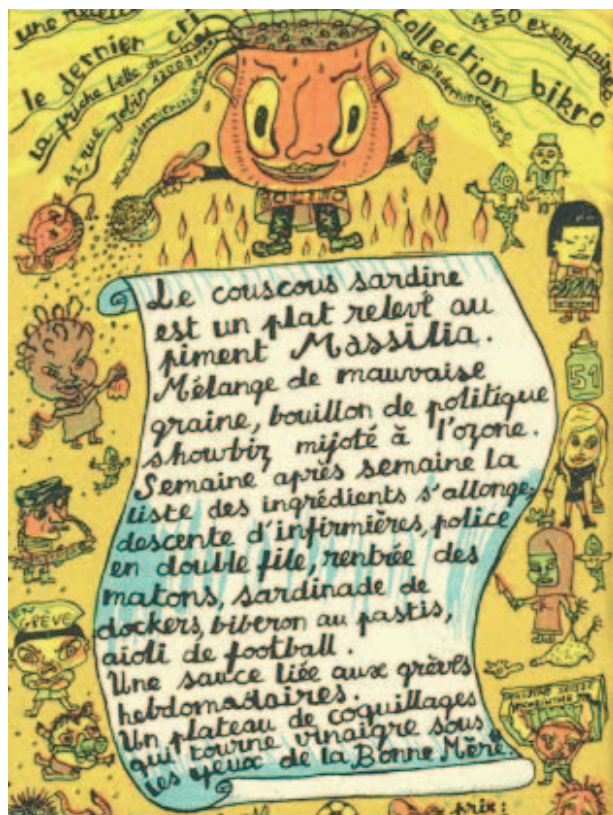 une recette
le dernier cri
la friche belle de mai
41 rue Jobin 13003
www.lederniercri.org
450 exemplaires
collection bikro
dc@lederniercri.org
Le couscous sardine
est un plat relevé au
piment Massilia.
Mélange de mauvaise
graine, bouillon de politique
showbiz mijoté à l'ozone.
Semaine après semaine la
liste des ingrédients s'allonge;
descente d'infirmières, police
en double file, rentrée des
matons, sardinade de
dockers, biberon au pastis,
aioli de football.
Une sauce liée aux grèves
hebdomadaires.
Un plateau de coquillages
qui tourne vinaigre sous
les yeux de la Bonne Mère.
51
EN
GRÈVE
prix: